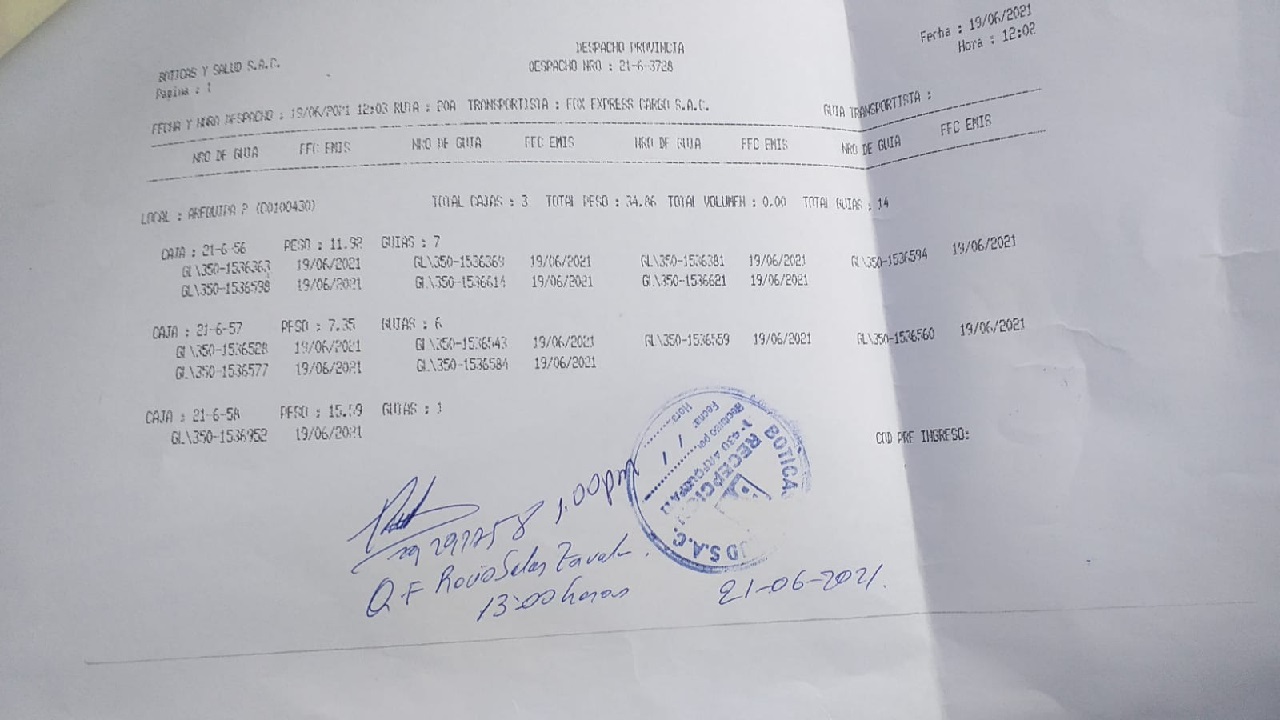 BOTICAS Y SALUD S.A.C.
Pagina : 1
DESPACHO PROVINCIA
DESPACHO NRO : 21-6-3728
Fecha : 19/06/2021
Hora : 12:02
FECHA Y HORA DESPACHO : 19/06/2021 12:03 RUTA : 20A TRANSPORTISTA : FOX EXPRESS CARGO S.A.C. GUIA TRANSPORTISTA :
NRO DE GUIA FEC EMIS NRO DE GUIA FEC EMIS NRO DE GUIA FEC EMIS NRO DE GUIA FEC EMIS
LOCAL : AREQUIPA P (C0100430) TOTAL CAJAS : 3 TOTAL PESO : 34.86 TOTAL VOLUMEN : 0.00 TOTAL GUIAS : 14
CAJA : 21-6-56 PESO : 11.92 GUIAS : 7
GL\350-1536363 19/06/2021 GL\350-1536369 19/06/2021 GL\350-1536381 19/06/2021 GL\350-1536594 19/06/2021
GL\350-1536598 19/06/2021 GL\350-1536614 19/06/2021 GL\350-1536621 19/06/2021
CAJA : 21-6-57 PESO : 7.35 GUIAS : 6
GL\350-1536528 19/06/2021 GL\350-1536543 19/06/2021 GL\350-1536559 19/06/2021 GL\350-1536560 19/06/2021
GL\350-1536577 19/06/2021 GL\350-1536584 19/06/2021
CAJA : 21-6-58 PESO : 15.59 GUIAS : 1
GL\350-1536952 19/06/2021
COD PRE INGRESO:
BOTICA
S.A.C.
RECEPCION
Recibido por
Fecha:
Hora:
Q.F Rocio Salas
13:00 horas
21-06-2021.